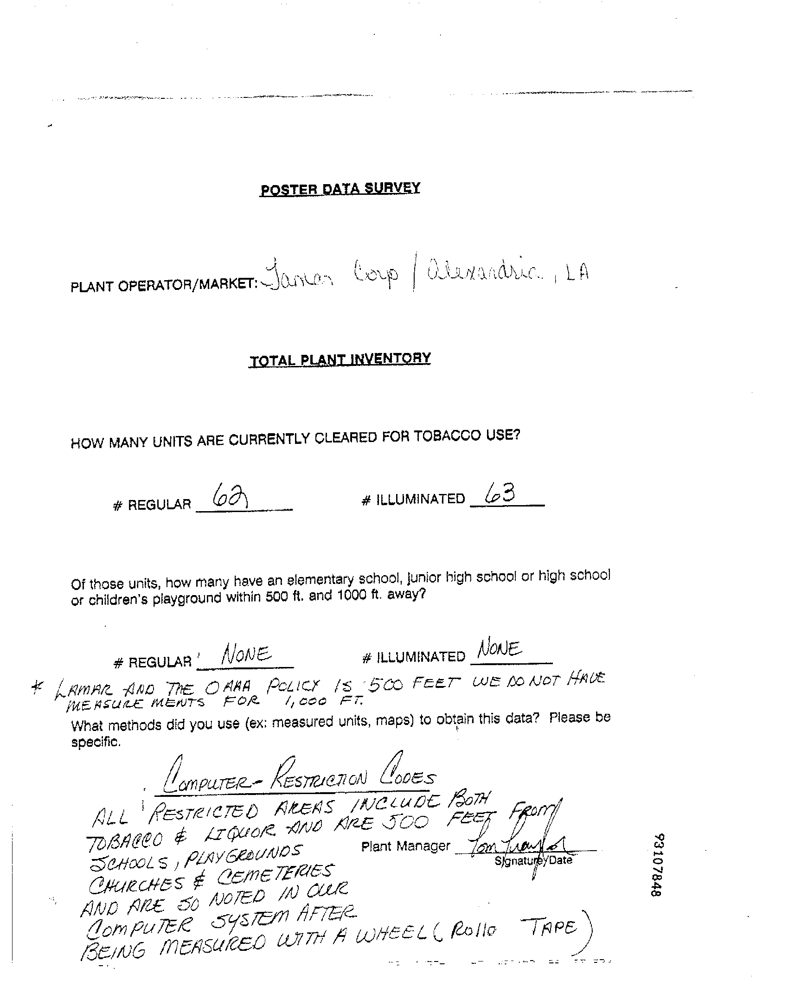 POSTER DATA SURVEY
PLANT OPERATOR/MARKET: Lamar Corp / Alexandria, LA
TOTAL PLANT INVENTORY
HOW MANY UNITS ARE CURRENTLY CLEARED FOR TOBACCO USE?
# REGULAR 62 # ILLUMINATED 63
Of those units, how many have an elementary school, junior high school or high school
or children's playground within 500 ft. and 1000 ft. away?
# REGULAR NONE # ILLUMINATED NONE
* LAMAR AND THE OAAA POLICY IS 500 FEET WE DO NOT HAVE
MEASUREMENTS FOR 1,000 FT.
What methods did you use (ex: measured units, maps) to obtain this data? Please be
specific.
COMPUTER - RESTRICTION CODES
ALL RESTRICTED AREAS INCLUDE BOTH
TOBACCO & LIQUOR AND ARE 500 FEET FROM
SCHOOLS, PLAYGROUNDS
Plant Manager Tom
Signature/Date
CHURCHES & CEMETERIES
AND ARE SO NOTED IN OUR
COMPUTER SYSTEM AFTER
BEING MEASURED WITH A WHEEL (Rollo TAPE)
93107848